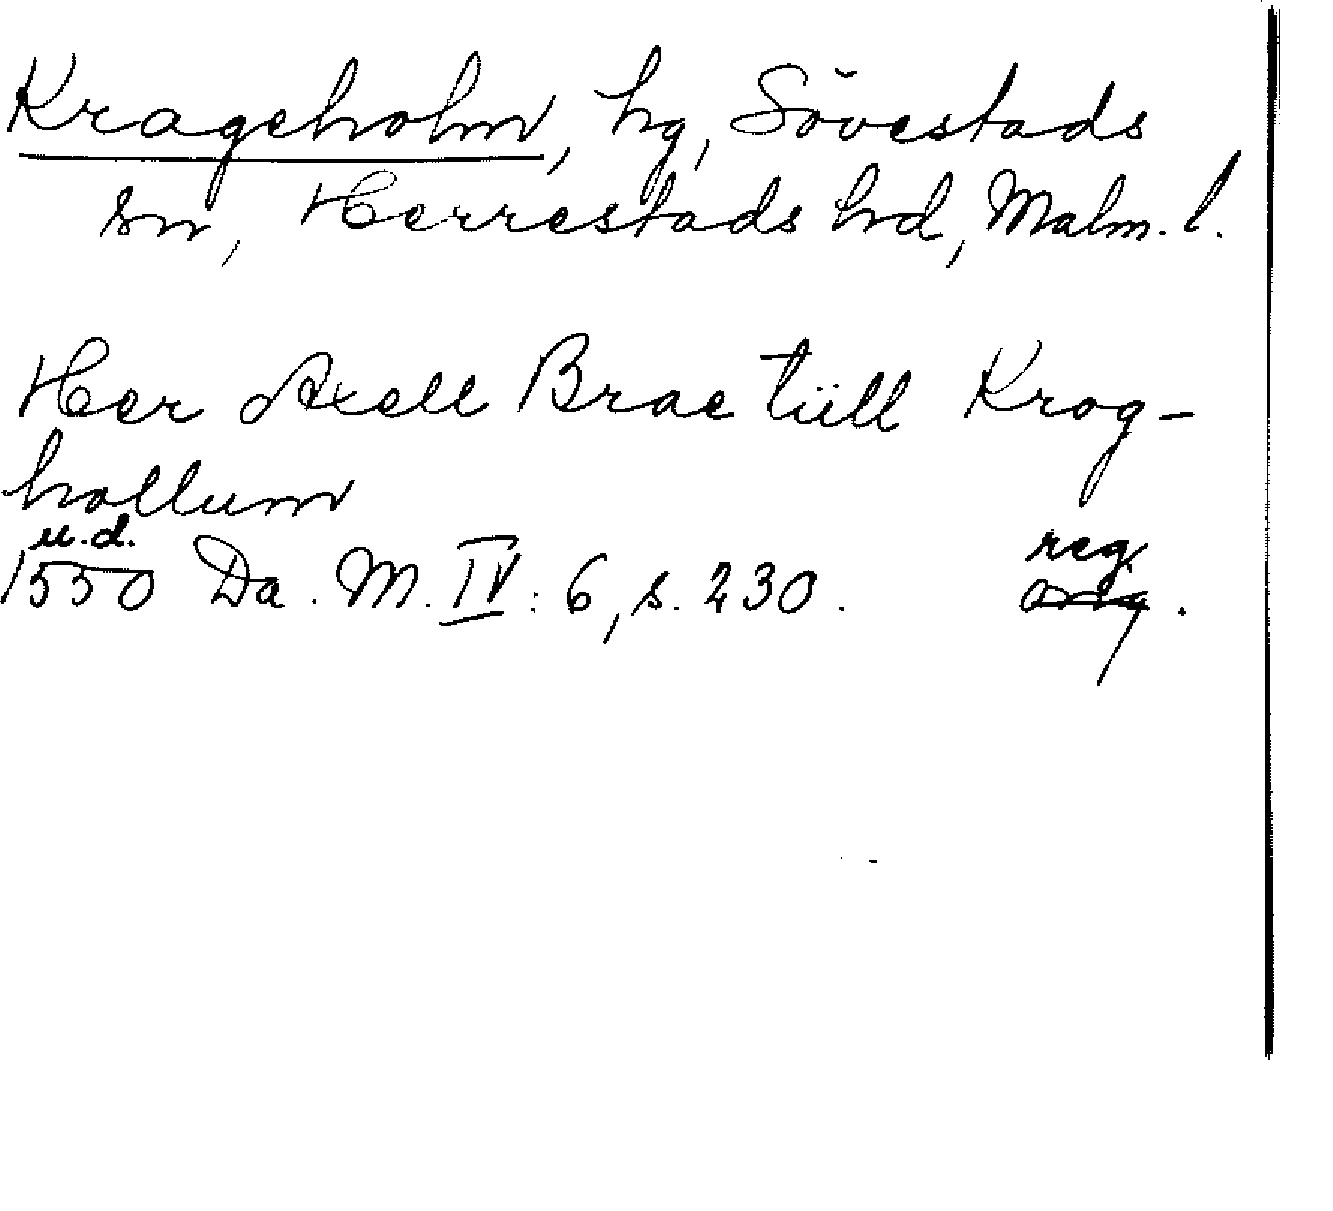 Krageholm, hg, Sövestads
sn, Herrestads hd, Malm. l.
Her Axell Brae tüll Krog-
hollum
u.d.
1550 Da. M. IV: 6, s. 230.
reg.
orig.